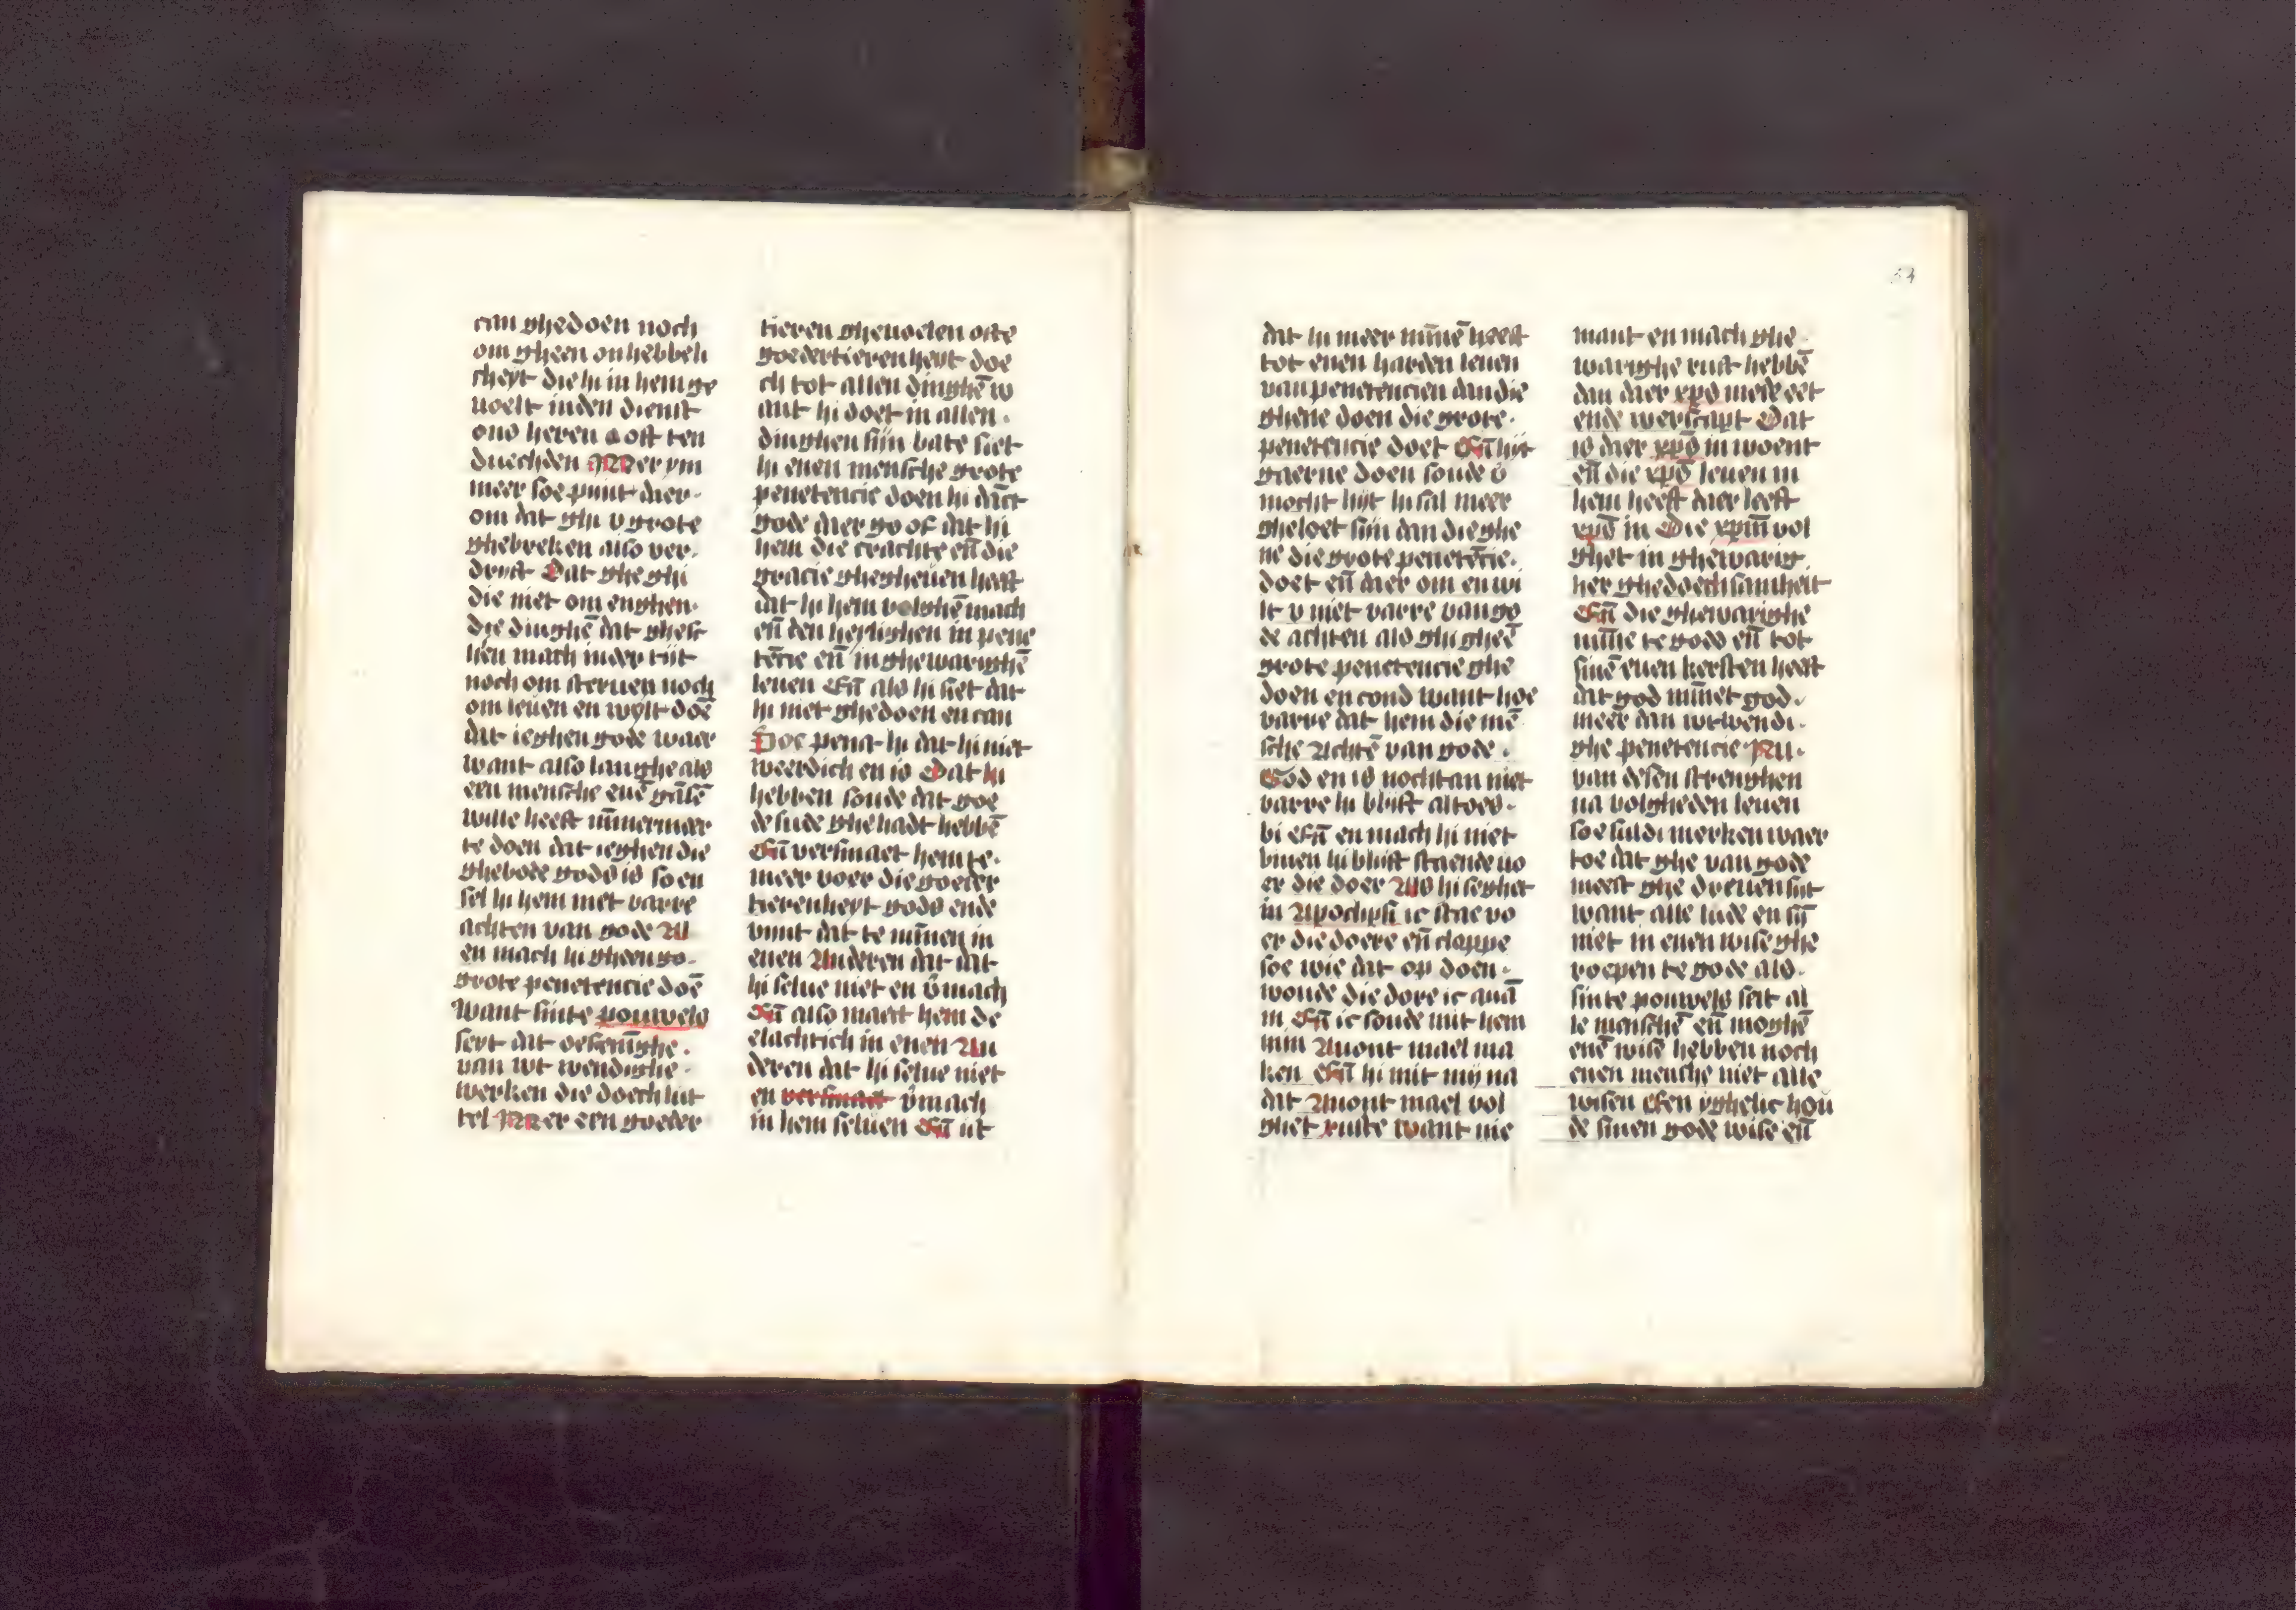 can ghedoen noch
om gheen onhebbeli
cheyt die hi in hem ge
uoelt inden dienst
ons heren oft ten
duechden Mer ym
meer soe punt daer
om dat ghi v grote
ghebreken also ver
dryft Dat ghe ghi
die niet om enghen
die dinghē dat ghesc
hien mach inder tijt
noch om steruen noch
om leuen en wylt doē
dat ieghen gode waer
want also langhe als
een mensche enē gāsē
wille heeft nūmermeer
te doen dat ieghen die
ghebode gods is so en
sel hi hem niet varre
achten van gode Al
en mach hi gheen so
grote penetencie doē
want sinte pouwels
seyt dat oefeninghe
van wt wendighe
werken die doech lut
tel Mer een goeder
tieren gheuoelen ofte
goedertierenheyt doe
ch tot allen dinghē w
ant hi doet in allen
dinghen sijn bate siet
hi enen mensche grote
penetencie doen hi dāct
gode daer go of dat hi
hem die crachte eñ die
gracie ghegheuen heeft
dat hi hem volghē mach
eñ den heylighen in pene
tēcie eñ in ghewarighē
leuen Eñ als hi siet dat
hi niet ghedoen en can
Soe penst hi dat hi niet
weerdich en is Dat hi
hebben soude dat goe
de lude ghehadt hebbē
Eñ versmaet hem te
meer voer die goeder
tierenheyt gods ende
vint dat te minnen in
enen Anderen dat dat
hi selue niet en v̄mach
Eñ also maect hem de
elachtich in enen An
deren dat hi selue niet
en versmaet v̄mach
in hem seluen Eñ ist
dat hi meer minnē heeft
tot enen harden leuen
van penetencien dan die
ghene doen die grote
penetencie doet Eñ hijt
gaerne doen soude o
mocht hijt hi sal meer
gheloet sijn dan die ghe
ne die grote penetēcie
doet eñ daer om en wi
lt v niet varre van go
de achten als ghi gheē
grote penetencie ghe
doen en cond want hoe
varre dat hem die mē
sche Achtē van gode
God en is nochtan niet
varre hi blijft altoes
bi Eñ en mach hi niet
binen hi blijft staende uo
er die doer Als hi seghet
in Apoclipsi ic stae vo
er die doere eñ cloppe
soe wie dat op doen
woude die dore ic auā
in Eñ ic soude mit hem
min Auont mael ma
ken Eñ hi mit mij na
dat Auont mael vol
ghet ruste want nie
mant en mach ghe
warighe rust hebbē
dan daer xp̄s mede eet
ende werscapt Dat
is daer xp̄s in woent
eñ die xp̄s leuen in
hem heeft daer leeft
xp̄s in Die xp̄m vol
ghet in ghewarig
her ghedoechsamheit
Eñ die ghewarighe
minne te gods eñ tot
sinē euen kersten heeft
dat god minnet god
meer dan wtwendi
ghe penetencie Nu
van desen strenghen
na volgheden leuen
soe suldi merken waer
toe dat ghe van gode
meest ghe dreuen sijt
want alle lude en sij
niet in enen wise ghe
roepen te gode als
sinte pouwels seit al
le menschē eñ moghē
enē wise hebben noch
enen mensche niet alle
wisen Een yghelic hou
de sinen gode wise eñ